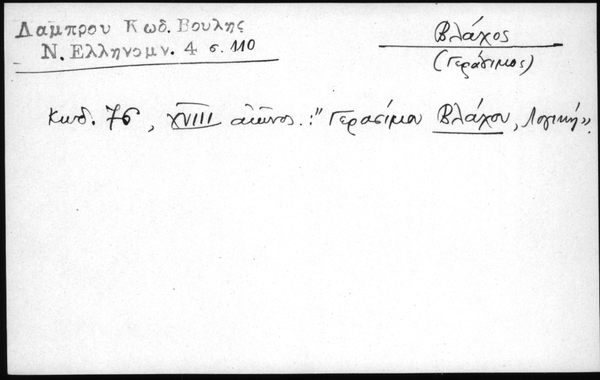 Λαμπρου Κωδ. Βουλης
Ν. Ελληνομν. 4 σ. 110
Βλάχος
(Γεράσιμος)
Κωδ. 76, XVIII αἰῶνος.: "Γερασίμου Βλάχου, Λογική".